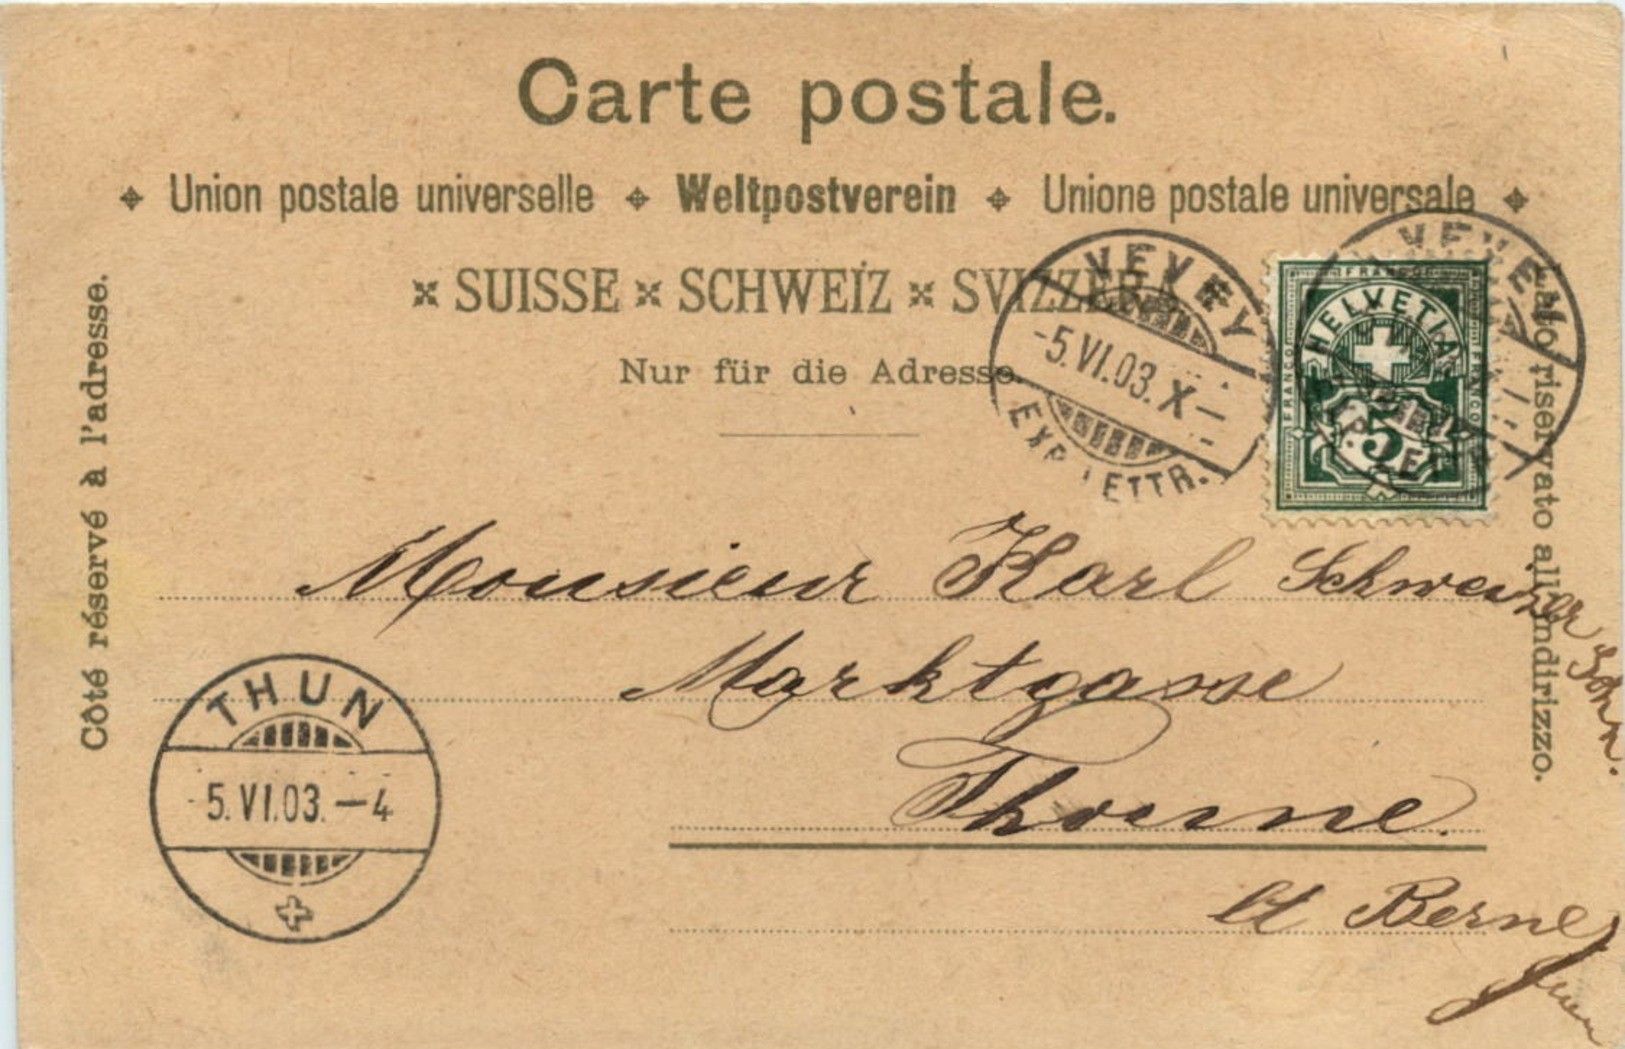 Carte postale.
Union postale universelle Weltpostverein Unione postale universale
SUISSE SCHWEIZ SVIZZERA
Nur für die Adresse.
Côté réservé à l'adresse.
Lato riservato all'indirizzo.
VEVEY
-5.VI.03.X-
EXP. LETTR.
VEVEY
EXP. LETTR.
FRANCO
FRANCO
FRANCO
HELVETIA
5
Monsieur Karl Schweizer Sohn.
Marktgasse
Thoune.
Ct Berne
THUN
5.VI.03.-4